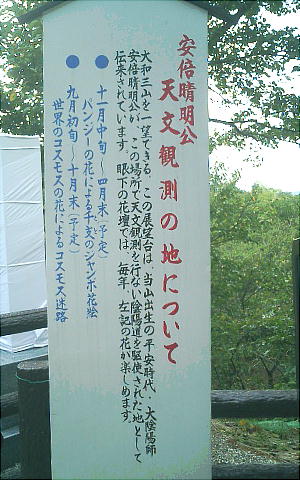 安倍晴明公
天文観測の地について
大和三山を一望できる、この展望台は、当山出生の平安時代・大陰陽師
安倍晴明公が、この場所で天文観測を行ない陰陽道を駆使された地として
伝来されています。眼下の花壇では、毎年、左記の花が楽しめます。
● 十一月中旬〜四月末(予定)
パンジーの花による干支のジャンボ花絵
● 九月初旬〜十月末(予定)
世界のコスモスの花によるコスモス迷路